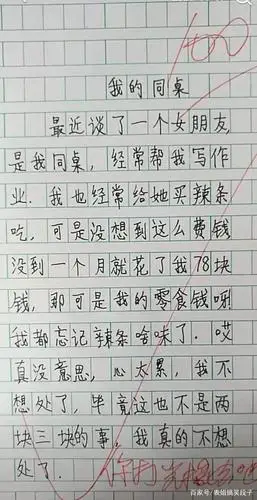 我的同桌
最近谈了一个女朋友,
是我同桌，经常帮我写作
业．我也经常给她买辣条
吃，可是没想到这么费钱
没到一个月就花了我78块
钱，那可是我的零食钱呀!
我都忘记辣条啥味了．哎
真没意思，心太累，我不
想处了，毕竟这也不是两
块三块的事，我真的不想
处了．
百家号/表姐搞笑段子